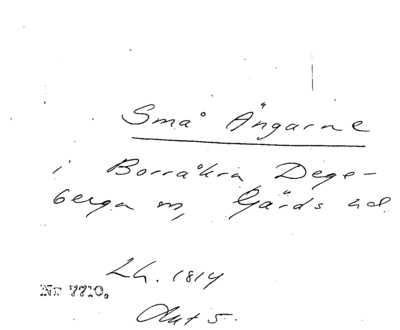 Små Ängarne
i Borråkra Dege-
berga sn, Gärds hd
Lh. 1814
Nr 7710.
Akt 5.